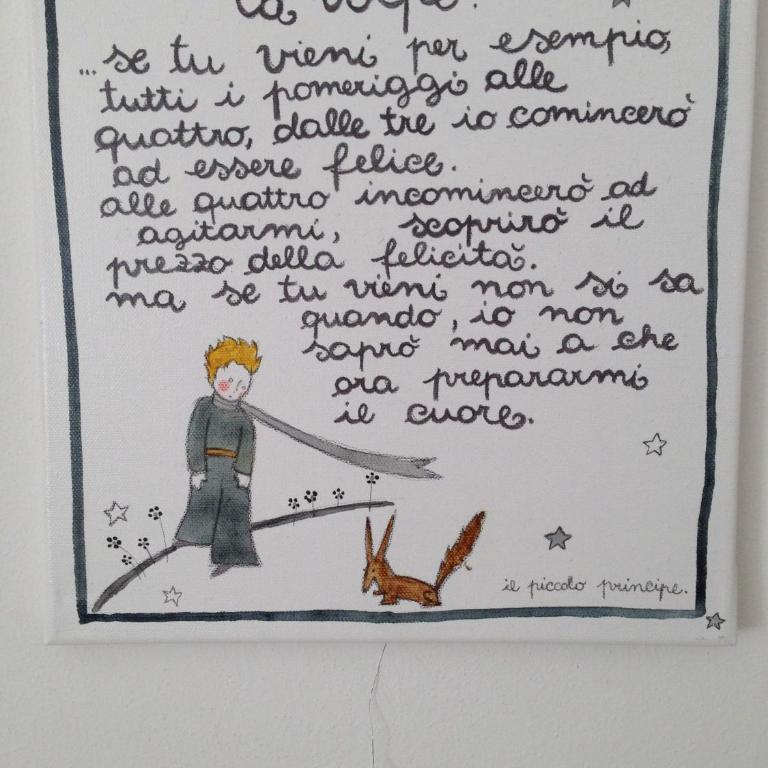 la volpe:
...se tu vieni per esempio,
tutti i pomeriggi alle
quattro, dalle tre io comincerò
ad essere felice.
alle quattro incomincerò ad
agitarmi, scoprirò il
prezzo della felicità.
ma se tu vieni non si sa
quando, io non
saprò mai a che
ora prepararmi
il cuore.
il piccolo principe.